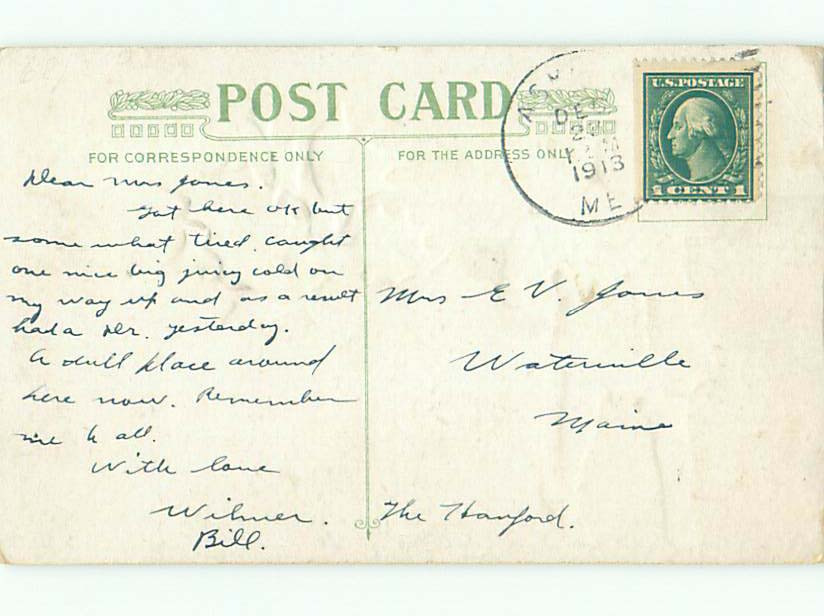 POST CARD
FOR CORRESPONDENCE ONLY
FOR THE ADDRESS ONLY
U.S. POSTAGE
1 CENT 1
DE
1913
ME
Dear Mrs Jones.
Got here OK but
some what tired. caught
one nice big juicy cold on
my way up and as a result
had a Dr. yesterday.
A dull place around
here now. Remember
me to all.
With love
Wilmer.
Bill.
Mrs E V. Jones
Waterville
Maine
The Hanford.